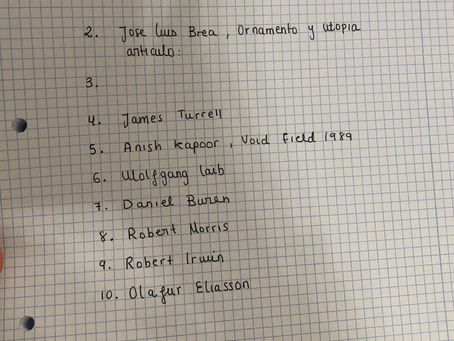 2. Jose Luis Brea, Ornamento y utopia
articulo:
3.
4. James Turrell
5. Anish Kapoor, Void Field 1989
6. Wolfgang Laib
7. Daniel Buren
8. Robert Morris
9. Robert Irwin
10. Olafur Eliasson